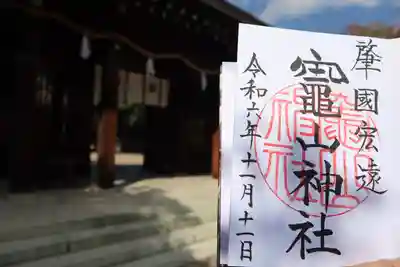 肇國宏遠
竈山神社
令和六年十一月十二日